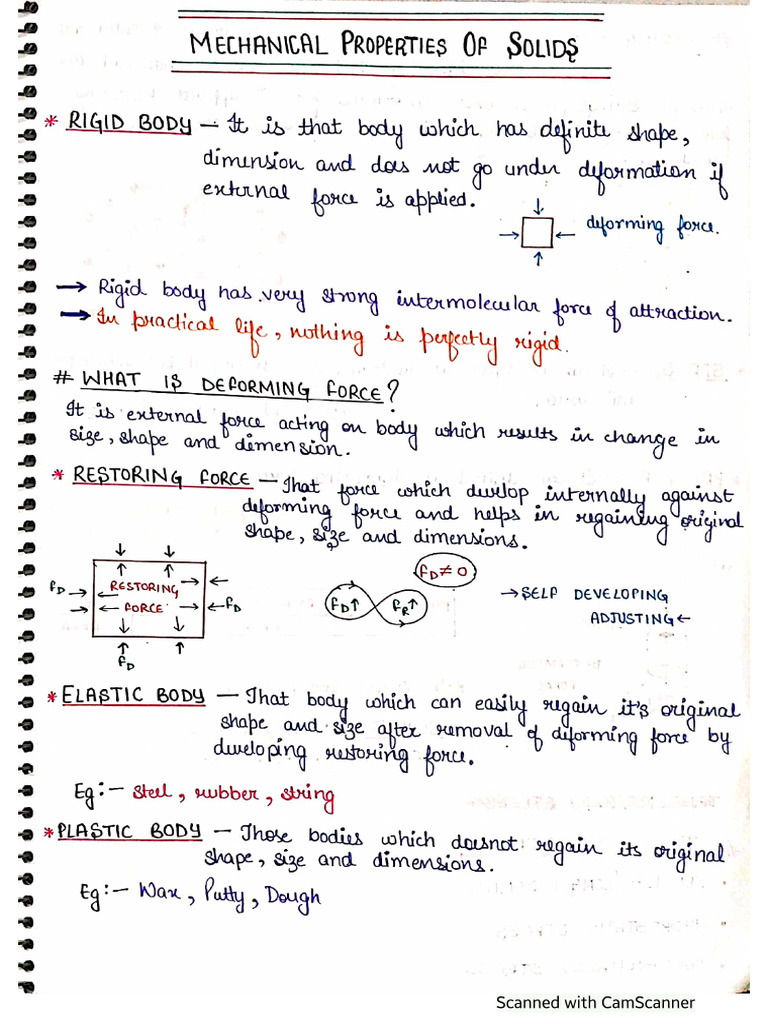 MECHANICAL PROPERTIES OF SOLIDS
* RIGID BODY — It is that body which has definite shape,
dimension and does not go under deformation if
external force is applied.
deforming force.
→ Rigid body has very strong intermolecular force of attraction.
→ In practical life, nothing is perfectly rigid.
# WHAT IS DEFORMING FORCE?
It is external force acting on body which results in change in
size, shape and dimension.
* RESTORING FORCE — That force which develop internally against
deforming force and helps in regaining original
shape, size and dimensions.
FD RESTORING
FORCE FD
FD
FD↑ FR↑
FD≠0
→ SELF DEVELOPING
ADJUSTING ←
* ELASTIC BODY — That body which can easily regain it's original
shape and size after removal of deforming force by
developing restoring force.
Eg:- Steel, rubber, string
* PLASTIC BODY — Those bodies which doesnot regain its original
shape, size and dimensions.
Eg:- Wax, Putty, Dough
Scanned with CamScanner